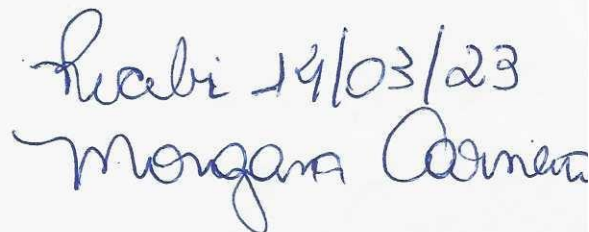 Recebi 14/03/23
Morgana Carneiro